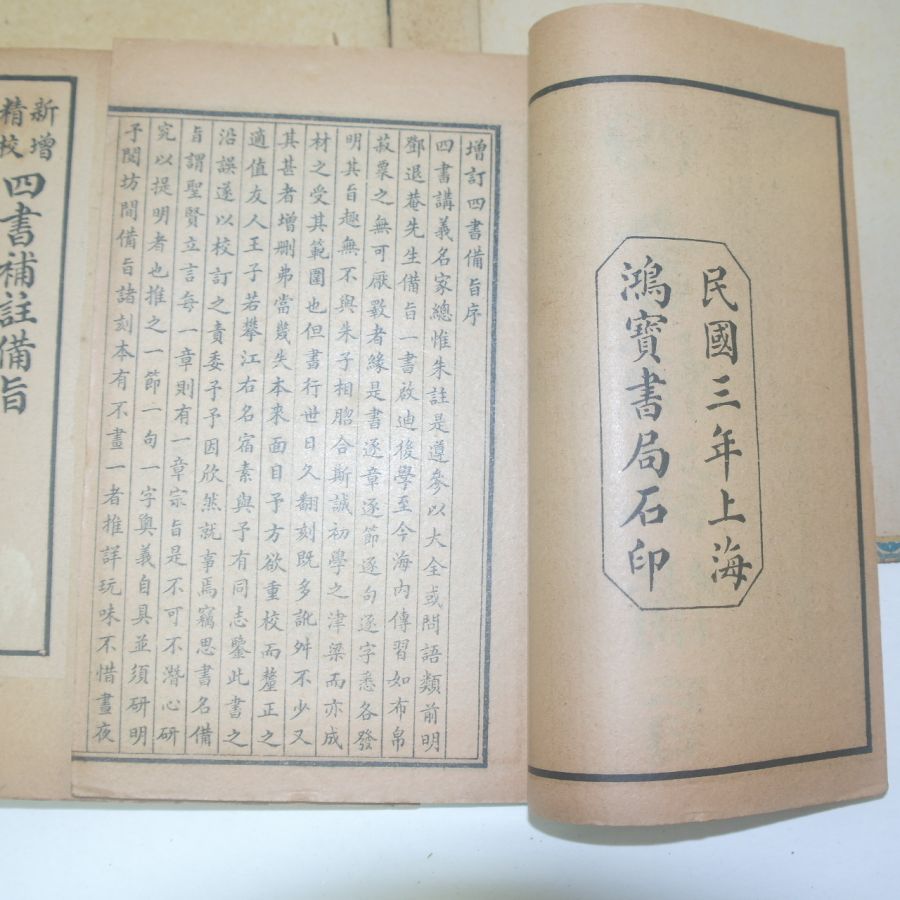 民國三年上海
鴻寶書局石印
增訂四書備旨序
四書講義名家總惟朱註是遵參以大全或問語類前明
鄧退菴先生備旨一書啟迪後學至今海內傳習如布帛
菽粟之無可厭斁者緣是書逐章逐節逐句逐字悉各發
明其旨趣無不與朱子相脗合斯誠初學之津梁而亦成
材之受其範圍也但書行世日久翻刻既多訛舛不少又
其甚者增刪弗當幾失本來面目予方欲重校而釐正之
適值友人王子若攀江右名宿素與予有同志鑒此書之
沿誤遂以校訂之責委予予因欣然就事焉竊思書名備
旨謂聖賢立言每一章則有一章宗旨是不可不潛心研
究以提明者也推之一節一句一字奧義自具並須研明
予閱坊間備旨諸刻本有不畫一者推詳玩味不惜晝夜
新增
精校
四書補註備旨